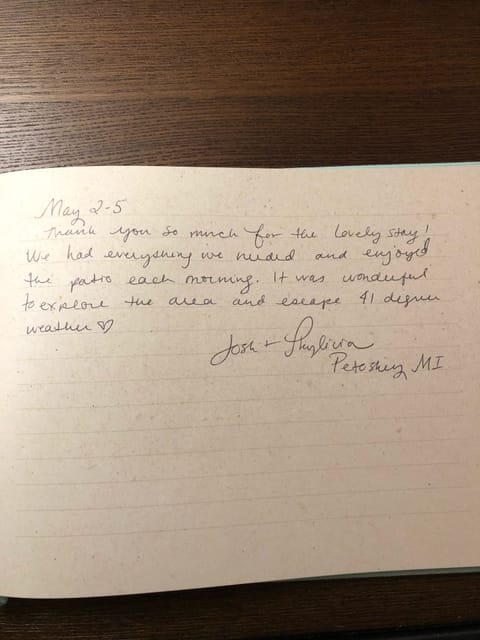 May 2-5
Thank you so much for the lovely stay!
We had everything we needed and enjoyed
the patio each morning. It was wonderful
to explore the area and escape 41 degree
weather ♡
Josh +
Petoskey MI